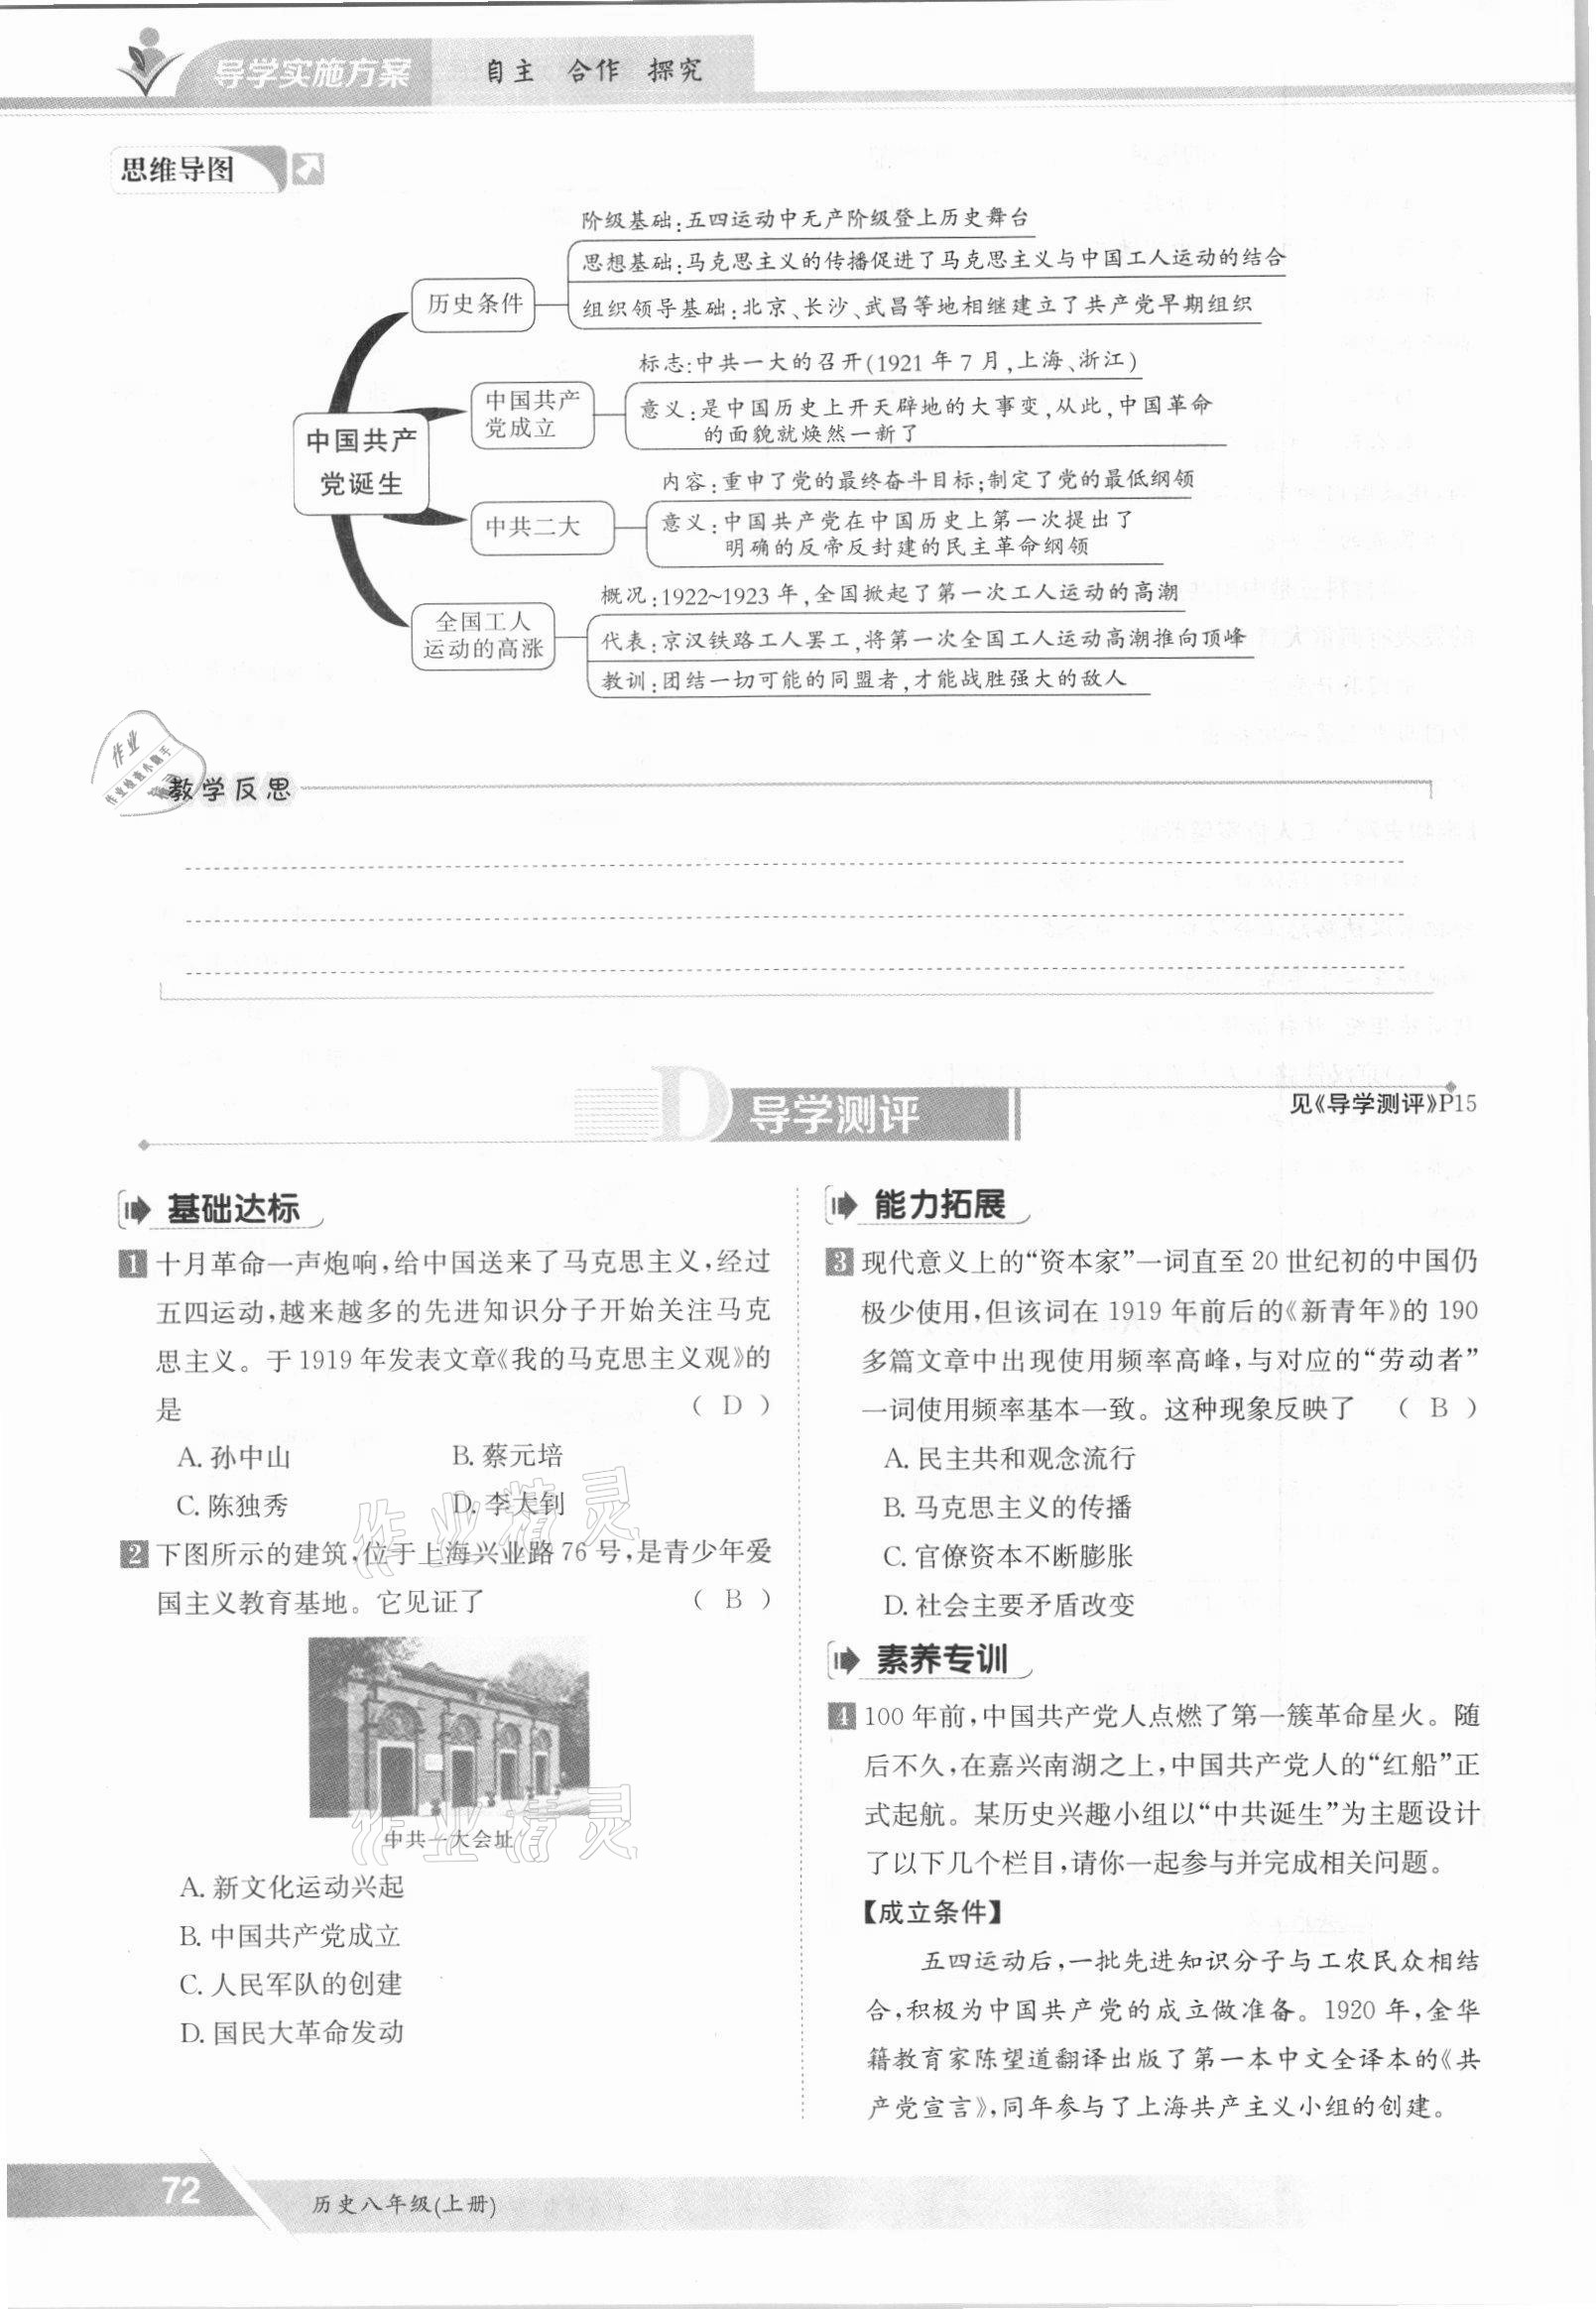 导学实施方案 自主 合作 探究
思维导图
阶级基础:五四运动中无产阶级登上历史舞台
思想基础:马克思主义的传播促进了马克思主义与中国工人运动的结合
历史条件
组织领导基础:北京、长沙、武昌等地相继建立了共产党早期组织
标志:中共一大的召开(1921年7月,上海、浙江)
中国共产
党成立
意义:是中国历史上开天辟地的大事变,从此,中国革命
的面貌就焕然一新了
中国共产
党诞生
内容:重申了党的最终奋斗目标;制定了党的最低纲领
中共二大
意义:中国共产党在中国历史上第一次提出了
明确的反帝反封建的民主革命纲领
概况:1922~1923年,全国掀起了第一次工人运动的高潮
全国工人
运动的高涨
代表:京汉铁路工人罢工,将第一次全国工人运动高潮推向顶峰
教训:团结一切可能的同盟者,才能战胜强大的敌人
作业
作业检查小助手
教学反思
D 导学测评
见《导学测评》P15
基础达标
1 十月革命一声炮响,给中国送来了马克思主义,经过
五四运动,越来越多的先进知识分子开始关注马克
思主义。于1919年发表文章《我的马克思主义观》的
是 ( D )
A. 孙中山 B. 蔡元培
C. 陈独秀 D. 李大钊
2 下图所示的建筑,位于上海兴业路76号,是青少年爱
国主义教育基地。它见证了 ( B )
中共一大会址
A. 新文化运动兴起
B. 中国共产党成立
C. 人民军队的创建
D. 国民大革命发动
作业精灵
作业精灵
能力拓展
3 现代意义上的“资本家”一词直至20世纪初的中国仍
极少使用,但该词在1919年前后的《新青年》的190
多篇文章中出现使用频率高峰,与对应的“劳动者”
一词使用频率基本一致。这种现象反映了 ( B )
A. 民主共和观念流行
B. 马克思主义的传播
C. 官僚资本不断膨胀
D. 社会主要矛盾改变
素养专训
4 100年前,中国共产党人点燃了第一簇革命星火。随
后不久,在嘉兴南湖之上,中国共产党人的“红船”正
式起航。某历史兴趣小组以“中共诞生”为主题设计
了以下几个栏目,请你一起参与并完成相关问题。
【成立条件】
五四运动后,一批先进知识分子与工农民众相结
合,积极为中国共产党的成立做准备。1920年,金华
籍教育家陈望道翻译出版了第一本中文全译本的《共
产党宣言》,同年参与了上海共产主义小组的创建。
72
历史八年级(上册)